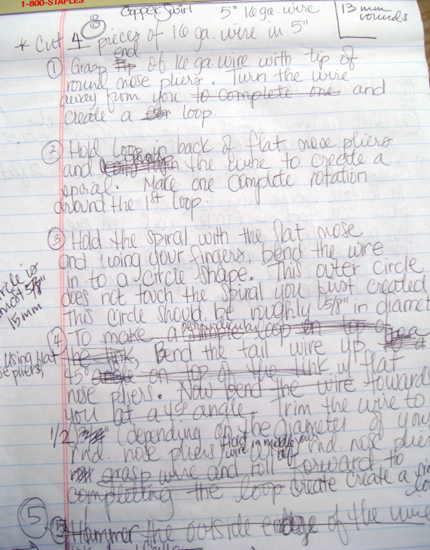 1-800-STAPLES
8 Copper Swirl 5" 16 ga. wire 13 mm rounds
* Cut 4 pieces of 16 ga. wire in 5"
① Grasp end of 16 ga wire with tip of
round nose pliers. Turn the wire
away from you to complete one and
create a loop.
② Hold loop in back of flat nose pliers
and the wire to create a
spiral. Make one complete rotation
around the 1st loop.
③ Hold the spiral with the flat nose
and using your fingers, bend the wire
in to a circle shape. This outer circle
does not touch the spiral you just created
This circle should be roughly 5/8" in diamet
circle is
almost 5/8"
15mm
④ To make a simple loop
the link, Bend the tail wire up
using flat
nose pliers
45° on top of the link w/ flat
nose pliers. Now bend the wire towards
you at a 45° angle. Trim the wire to
1/2 (depending on the diameter of your
rnd nose pliers rnd nose plier
grasp wire and roll forward to
completing the loop create create a
⑤ Hammer the outside edge of the wire